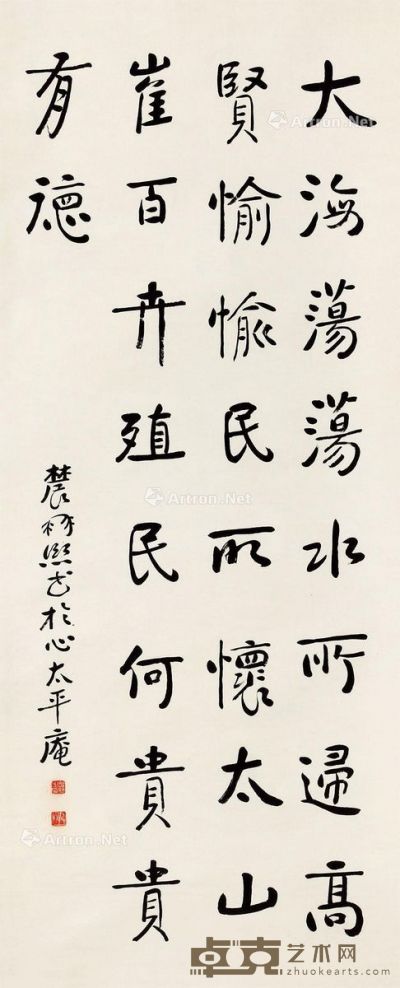 大海蕩蕩水所歸高
賢愉愉民所懷太山
崔百卉殖民何貴貴
有德
農髯熙书於心太平庵
Artron.Net
Artron.Net
Artron.Net
Artron.Net
Artron.Net
卓克艺术网
zhuokearts.com